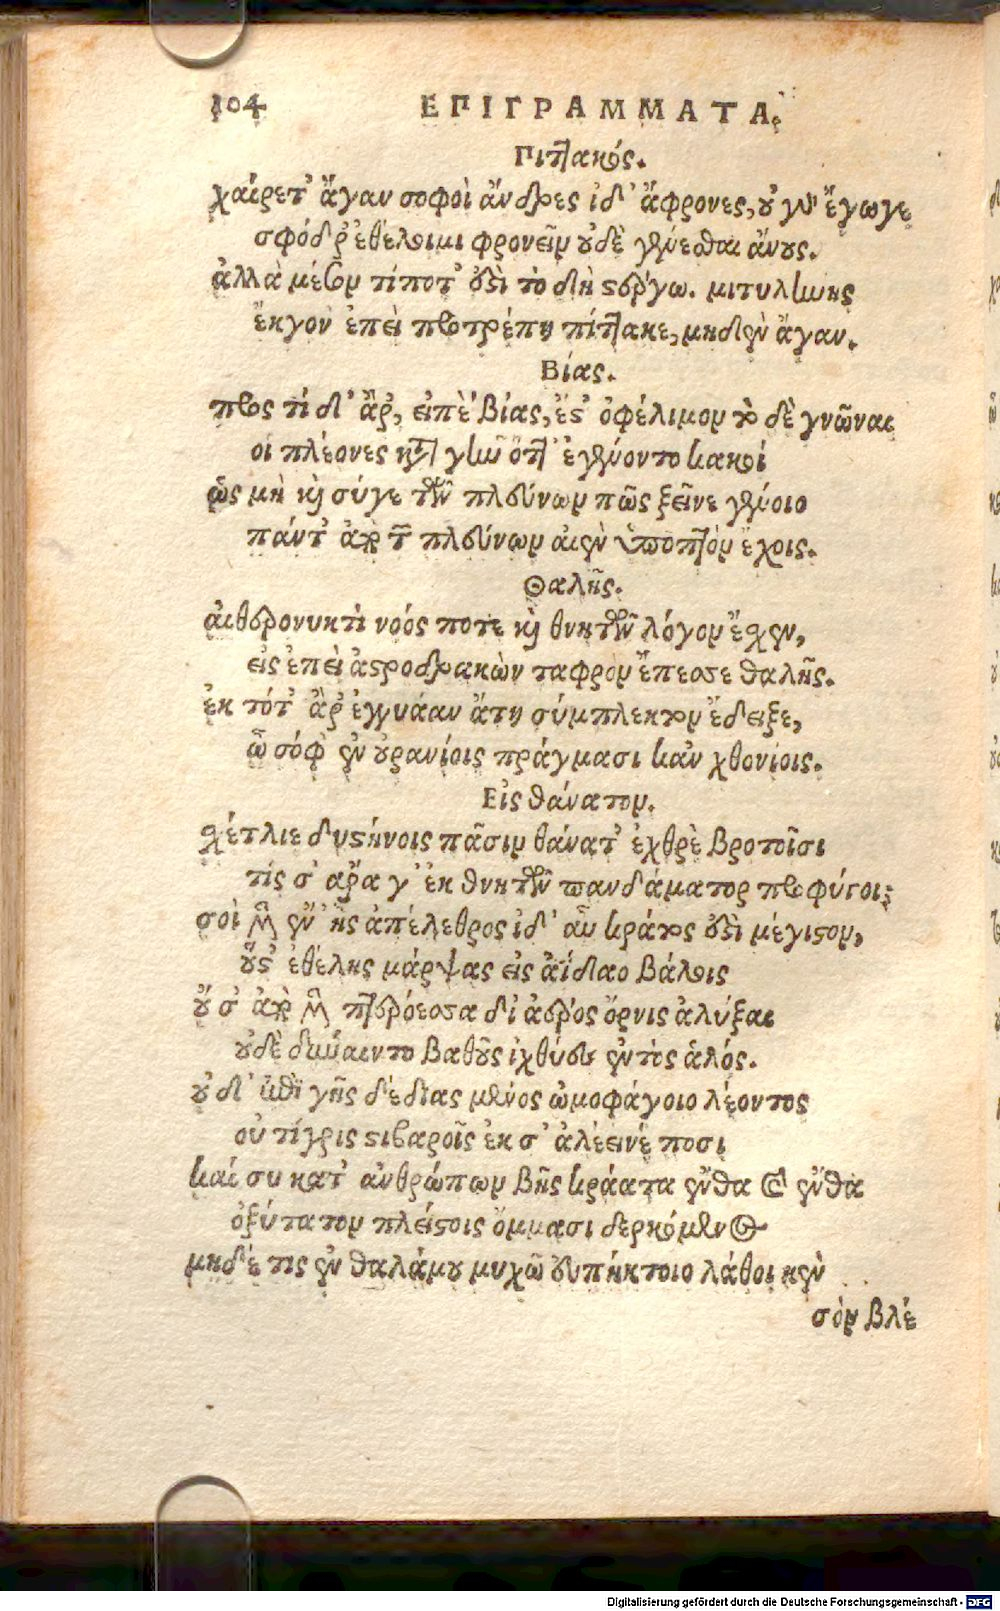 104 ΕΠΙΓΡΑΜΜΑΤΑ.
Πιττακός.
χαίρετ' ἄγαν σοφοὶ ἄνδρες ἰδ' ἄφρονες, οὐ γὰρ ἔγωγε
σφόδρ' ἐθέλοιμι φρονεῖν οὐδὲ γενέσθαι ἄνους.
ἀλλὰ μέσον τίποτ' ἐστὶ τὸ δὴ στέργω. μιτυλήνης
ἔκγον' ἐπεὶ προτρέπῃ πίττακε, μηδὲν ἄγαν.
Βίας.
πρὸς τί δ' ἄρ', εἰπὲ Βίας, ἔστ' ὀφέλιμον τὸ δὲ γνῶναι
οἱ πλέονες κατὰ γῆν ὅττι ἐγένοντο κακοί
ὡς μὴ καὶ σύγε τῶν πλεύνων πῶς ξεῖνε γένοιο
πάντ' ἀπὸ τῶν πλεύνων αἰὲν ὕποπτον ἔχοις.
Θαλῆς.
αἰθερονυκτὶ νοός ποτε καὶ θνητῶν λόγον ἔχεν,
εἰς ἐπεὶ ἀστροδρακὼν ταφρον ἔπεσσε θαλῆς.
ἐκ τότ' ἂρ' ἐγγυάαν ἄτῃ σύμπλεκτον ἔδειξε,
ὦ σόφ' ἐν οὐρανίοις πράγμασι κἀν χθονίοις.
Εἰς θάνατον.
σχέτλιε δυστήνοις πᾶσιν θάνατ' ἐχθρὲ βροτοῖσι
τίς σ' ἄρα γ' ἐκ θνητῶν πανδάματορ προφύγοι;
σοὶ μὲν ἓν ἧς ἀπέλεθρος ἰδ' αὖ κράτος ἐστὶ μέγιστον,
οὕστ' ἐθέλῃς μάρψας εἰς ἀΐδαο βάλοις
οὔ σ' ἀπὸ μὲν πτερόεσσα δι' ἀέρος ὄρνις ἀλύξαι
οὐδὲ δύναιντο βαθῦς ἰχθύες ἐντὸς ἁλός.
οὐδ' ἐπὶ γῆς δέδιας μένος ὠμοφάγοιο λέοντος
οὐ τίγρις στιβαροῖς ἐκ σ' ἀλέεινέ ποσι
καί συ κατ' ἀνθρώπων βῆς κράατα ἔνθα καὶ ἔνθα
ὀξύτατον πλείστοις ὄμμασι δερκόμενος
μηδέ τις ἐν θαλάμου μυχῶ εὐπήκτοιο λάθοι κεν
σὸν βλέ
Digitalisierung gefördert durch die Deutsche Forschungsgemeinschaft - DFG